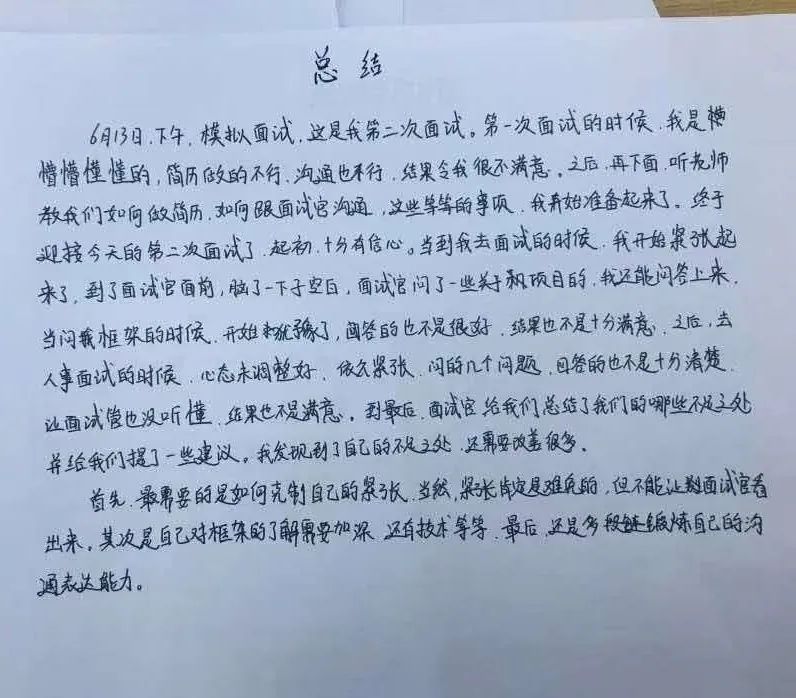 总结
6月13日、下午、模拟面试、这是我第二次面试。第一次面试的时候、我是懵
懵懵懂懂的，简历做的不行、沟通也不行、结果令我很不满意。之后、再下面、听老师
教我们如何做简历、如何跟面试官沟通，这些等等的事项、我开始准备起来了。终于
迎接今天的第二次面试了、起初、十分有信心。当到我去面试的时候、我开始紧张起
来了，到了面试官面前，脑子一下子空白，面试官问了一些关于项目的、我还能回答上来、
当问我框架的时候、开始犹豫了，回答的也不是很好、结果也不是十分满意、之后，去
人事面试的时候、心态未调整好、依久紧张、问的几个问题、回答的也不是十分清楚、
让面试管也没听懂、结果也不是满意。到最后、面试官给我们总结了我们的哪些不足之处
并给我们提了一些建议。我发现到了自己的不足之处、还需要改善很多。
首先、最需要的是如何克制自己的紧张、当然，紧张肯定是难免的，但不能让面试官看
出来。其次是自己对框架的了解需要加深、还有技术等等、最后、还是多锻炼自己的沟
通表达能力。